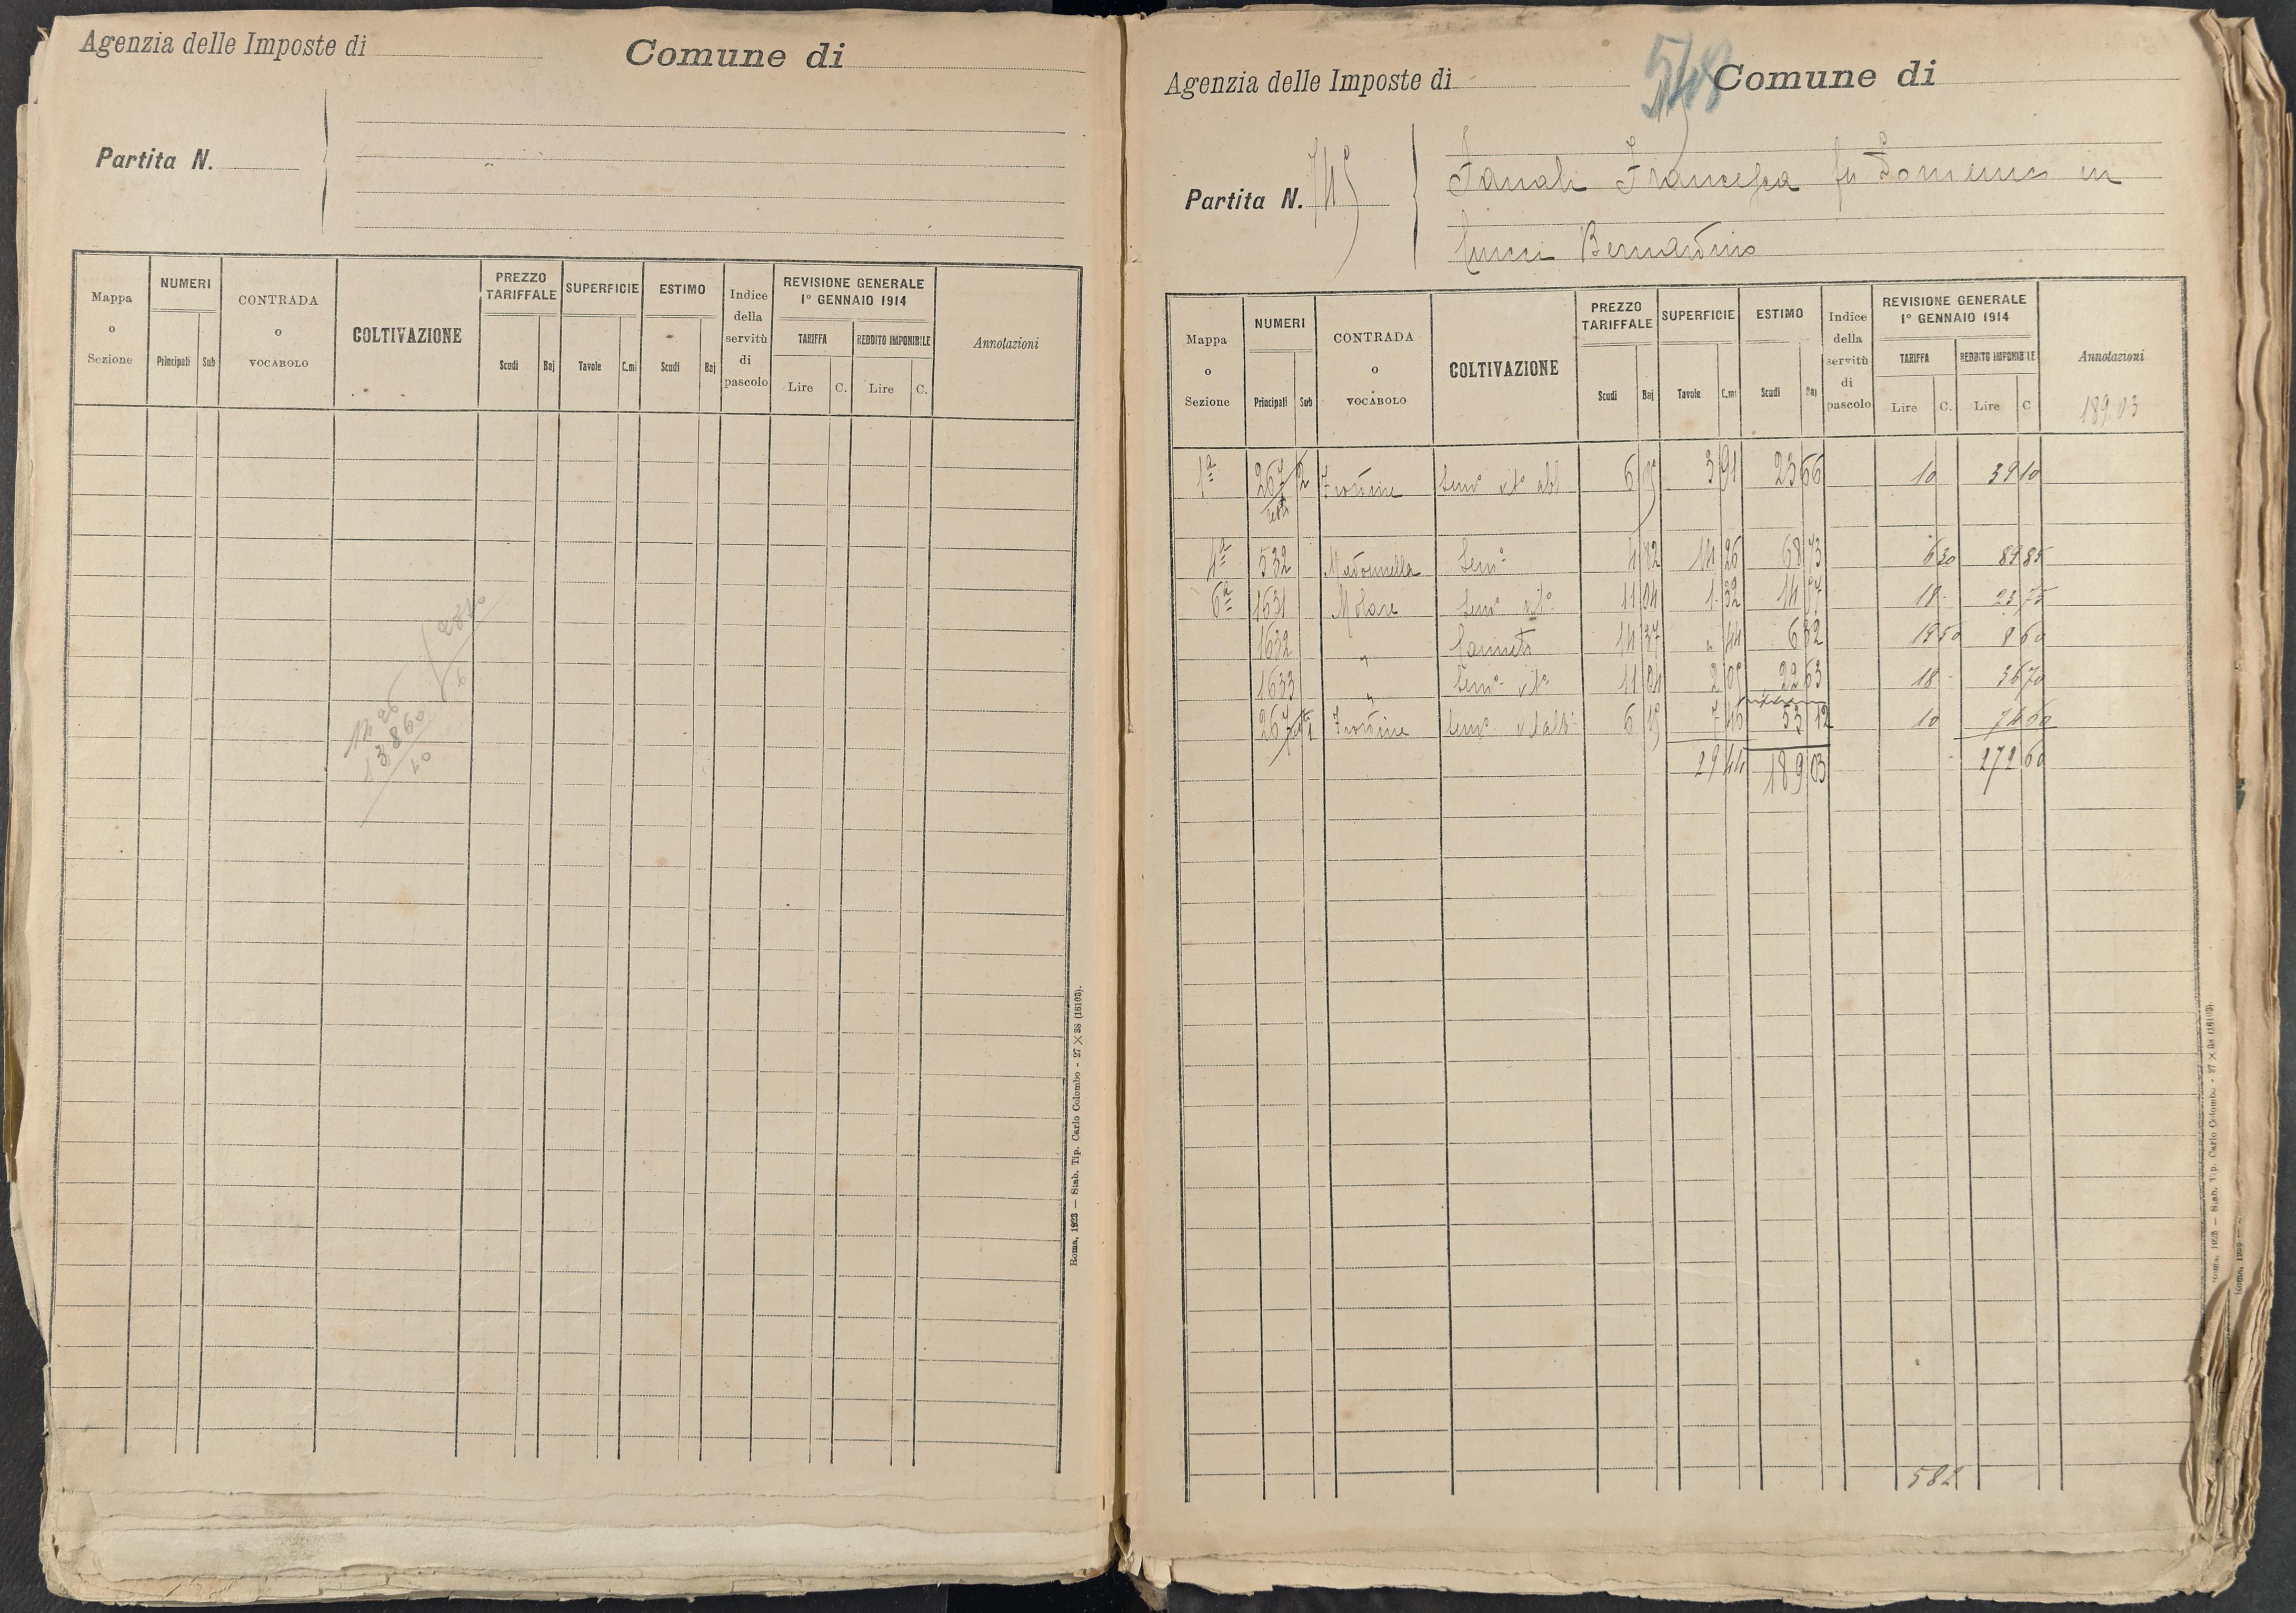 Agenzia delle Imposte di
Comune di
Partita N.
Mappa o Sezione
NUMERI
Principali
Sub
CONTRADA o VOCABOLO
COLTIVAZIONE
PREZZO TARIFFALE
Scudi
Baj
SUPERFICIE
Tavole
C.mi
ESTIMO
Scudi
Baj
Indice della servitù di pascolo
REVISIONE GENERALE
1° GENNAIO 1914
TARIFFA
Lire
C.
REDDITO IMPONIBILE
Lire
C.
Annotazioni
Roma, 1923 — Stab. Tip. Carlo Colombo - 27 X 38 (16103).
548
Agenzia delle Imposte di
Comune di
Partita N. 745
Fanali Francesca fu Domenico in
Cucci Bernardino
Mappa o Sezione
NUMERI
Principali
Sub
CONTRADA o VOCABOLO
COLTIVAZIONE
PREZZO TARIFFALE
Scudi
Baj
SUPERFICIE
Tavole
C.mi
ESTIMO
Scudi
Baj
Indice della servitù di pascolo
REVISIONE GENERALE
1° GENNAIO 1914
TARIFFA
Lire
C.
REDDITO IMPONIBILE
Lire
C
Annotazioni
189.03
1ª 267 2 Semº vtº 6 3 91 23 66 10 39 10
4ª 532 Madonnella Semº 4 82 14 26 68 73 6 30 89 85
6ª 1631 Molare Semº vtº 11 04 1 32 14 57 18 - 23 75
1632 " Canneto 14 37 " 44 6 32 19 50 8 60
1633 " Semº vtº 11 04 2 05 22 63 18 - 36 70
267 Semº 6 7 46 53 12 10 74 60
29 44 189 03 272 60
582
Roma, 1923 — Stab. Tip. Carlo Colombo - 27 X 38 (16103).